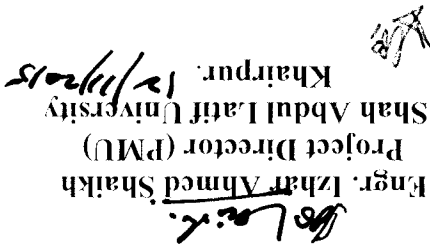 Engr. Izhar Ahmed Shaikh
Project Director (PMU)
Shah Abdul Latif University
Khairpur.
12/11/2015